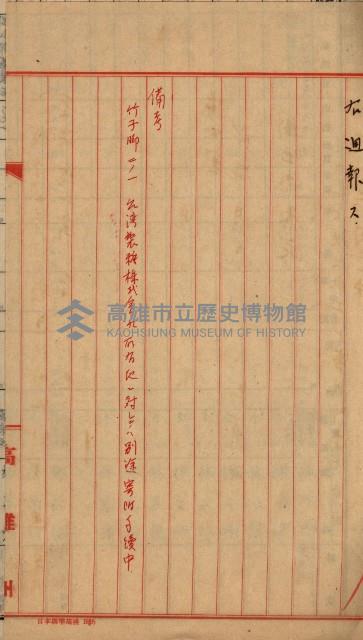 右回報ス
備考
竹子脚一ノ一 台湾製糖株式会社所有地ニ対シテハ別途寄附手續中
高雄州
高雄市立歷史博物館
KAOHSIUNG MUSEUM OF HISTORY